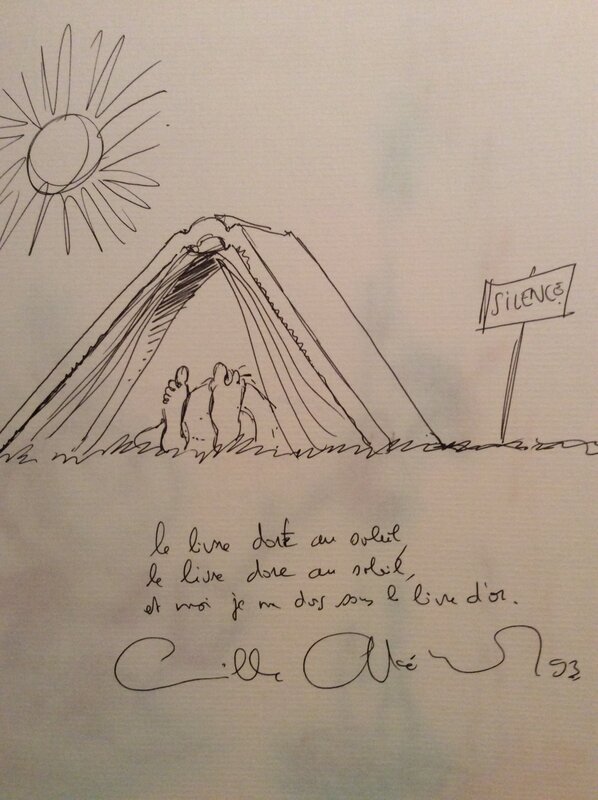 SILENCE
le livre dort au soleil,
le livre dore au soleil,
et moi je m dors sous le livre d'or.
Camille 93